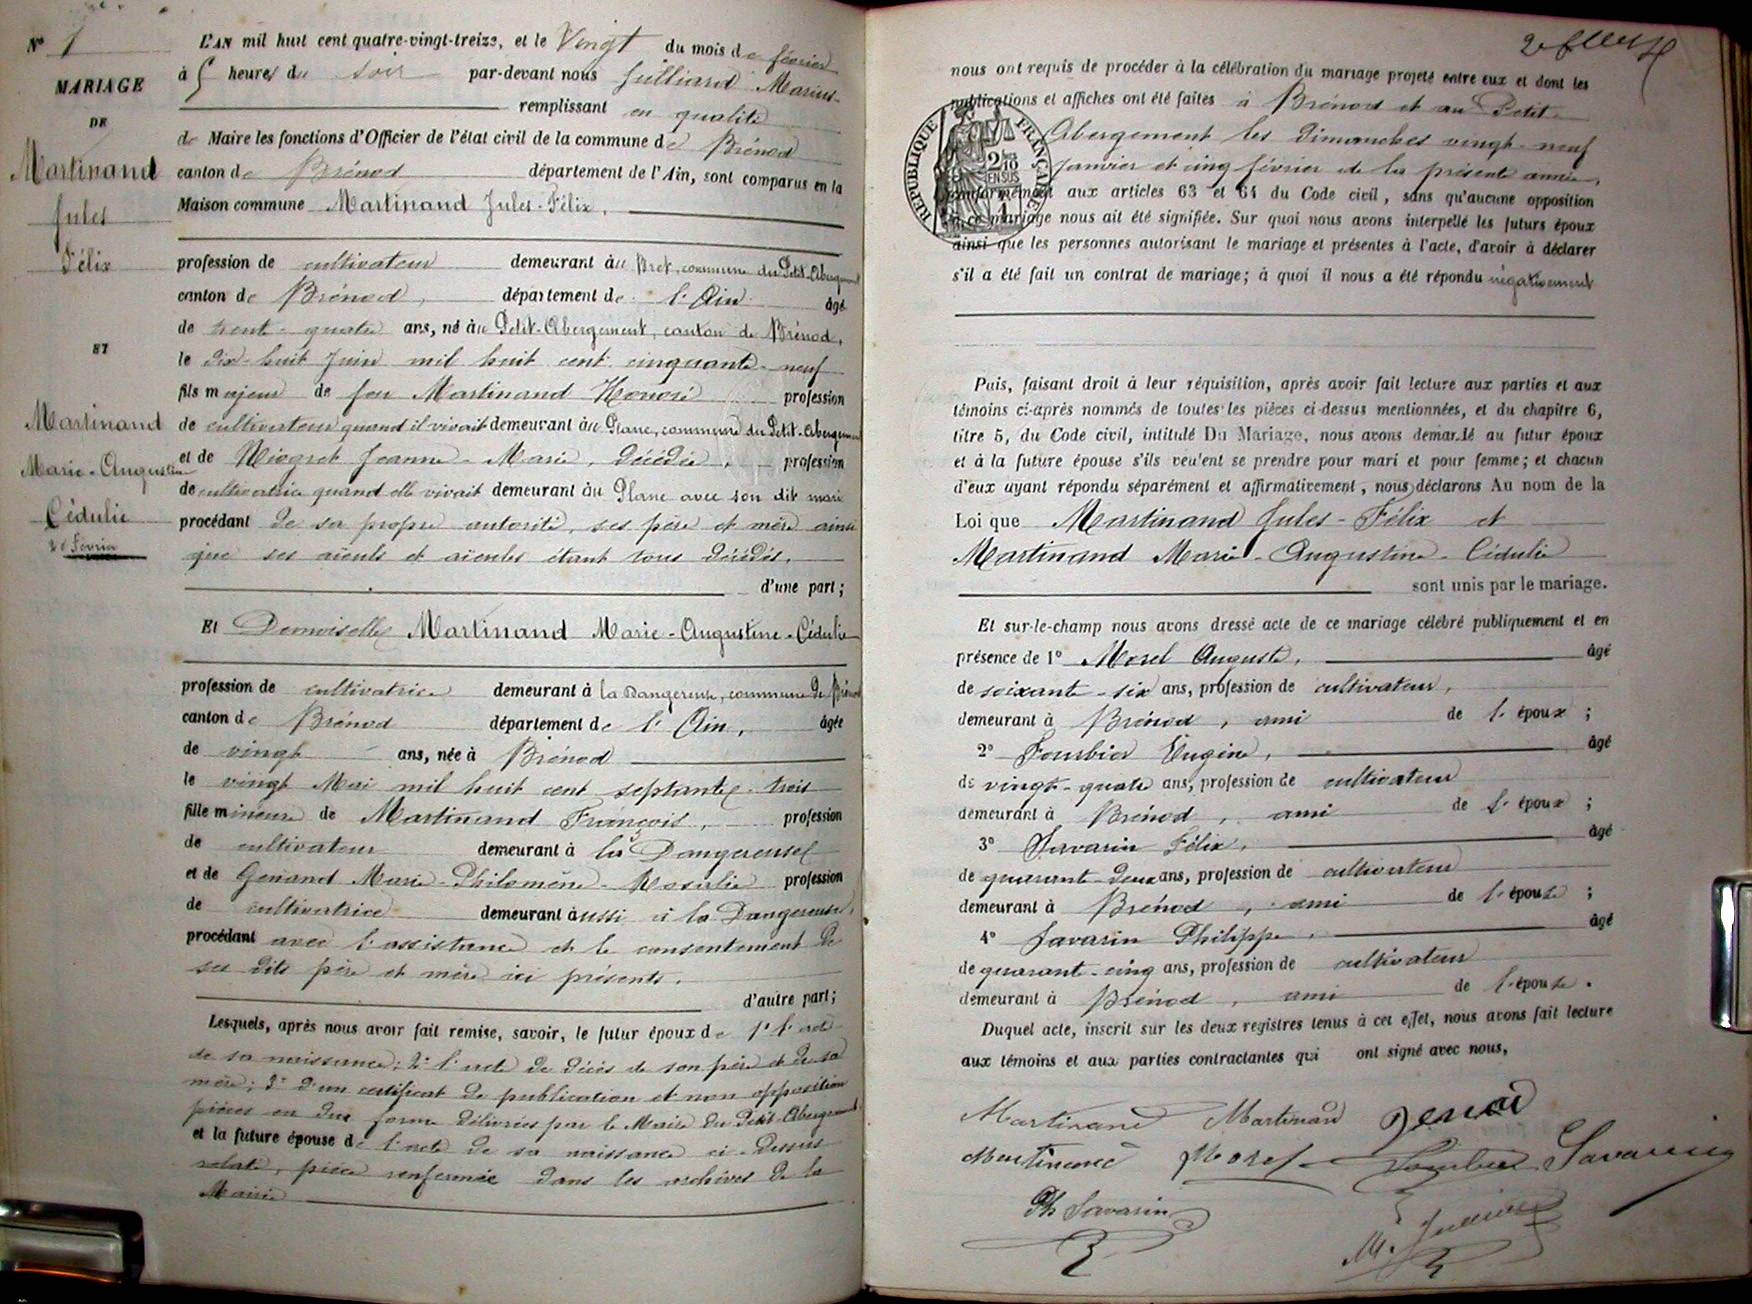 N° 1
MARIAGE
DE
Martinand
Jules
Félix
ET
Martinand
Marie-Augustine
Cédulie
20 février
L'AN mil huit cent quatre-vingt-treize, et le Vingt du mois de février
à 5 heures du soir par-devant nous Julliard Marius
remplissant en qualité
de Maire les fonctions d'Officier de l'état civil de la commune de Brénod
canton de Brénod département de l'Ain, sont comparus en la
Maison commune Martinand Jules-Félix,
profession de cultivateur demeurant au Pret, commune du Petit-Abergement
canton de Brénod, département de l'Ain âgé
de trent-quatre ans, né au Petit-Abergement, canton de Brénod,
le dix-huit Juin mil huit cent cinquante-neuf
fils majeur de feu Martinand Honoré profession
de cultivateur quand il vivait demeurant au Plane, commune du Petit-Abergement
et de Niogret Jeanne-Marie, décédée, profession
de cultivatrice quand elle vivait demeurant au Plane avec son dit mari
procédant de sa propre autorité, ses père et mère ainsi
que ses aieuls et aïeules étant tous décédés.
d'une part;
Et Demoiselle Martinand Marie-Augustine-Cédulie
profession de cultivatrice demeurant à la Dangereuse, commune de Brénod
canton de Brénod département de l'Ain, âgée
de vingt ans, née à Brénod
le vingt Mai mil huit cent septante-trois
fille mineure de Martinand François, profession
de cultivateur demeurant à la Dangereuse
et de Genand Marie-Philomène-Rosalie profession
de cultivatrice demeurant aussi à la Dangereuse,
procédant avec l'assistance et le consentement de
ses dits père et mère ici présents.
d'autre part;
Lesquels, après nous avoir fait remise, savoir, le futur époux de 1° l'acte
de sa naissance; 2° l'acte de décès de son père et de sa
mère; 3° d'un certificat de publication et non opposition
pièces en due forme délivrées par le Maire du Petit-Abergement
et la future épouse de l'acte de sa naissance ci-dessus
relaté, pièce renfermée dans les archives de la
Mairie
nous ont requis de procéder à la célébration du mariage projeté entre eux et dont les
publications et affiches ont été faites à Brénod et au Petit-
Abergement les dimanches vingt-neuf
Janvier et cinq février de la présente année,
conformément aux articles 63 et 64 du Code civil, sans qu'aucune opposition
à ce mariage nous ait été signifiée. Sur quoi nous avons interpellé les futurs époux
ainsi que les personnes autorisant le mariage et présentes à l'acte, d'avoir à déclarer
s'il a été fait un contrat de mariage; à quoi il nous a été répondu négativement
RÉPUBLIQUE FRANÇAISE
2/10 EN SUS
Puis, faisant droit à leur réquisition, après avoir fait lecture aux parties et aux
témoins ci-après nommés de toutes les pièces ci-dessus mentionnées, et du chapitre 6,
titre 5, du Code civil, intitulé Du Mariage, nous avons demandé au futur époux
et à la future épouse s'ils veulent se prendre pour mari et pour femme; et chacun
d'eux ayant répondu séparément et affirmativement, nous déclarons Au nom de la
Loi que Martinand Jules-Félix et
Martinand Marie-Augustine-Cédulie
sont unis par le mariage.
Et sur-le-champ nous avons dressé acte de ce mariage célébré publiquement et en
présence de 1° Morel Auguste, âgé
de soixante-six ans, profession de cultivateur,
demeurant à Brénod, ami de l'époux;
2° Fourbier Eugène, âgé
de vingt-quatre ans, profession de cultivateur
demeurant à Brénod, ami de l'époux;
3° Savarin Félix, âgé
de quarante-deux ans, profession de cultivateur
demeurant à Brénod, ami de l'épouse;
4° Savarin Philippe, âgé
de quarant-cinq ans, profession de cultivateur
demeurant à Brénod, ami de l'épouse.
Duquel acte, inscrit sur les deux registres tenus à cet effet, nous avons fait lecture
aux témoins et aux parties contractantes qui ont signé avec nous,
Martinand Martinand Genod
Martinand Morel Savarin
Ph Savarin
M. Julliard